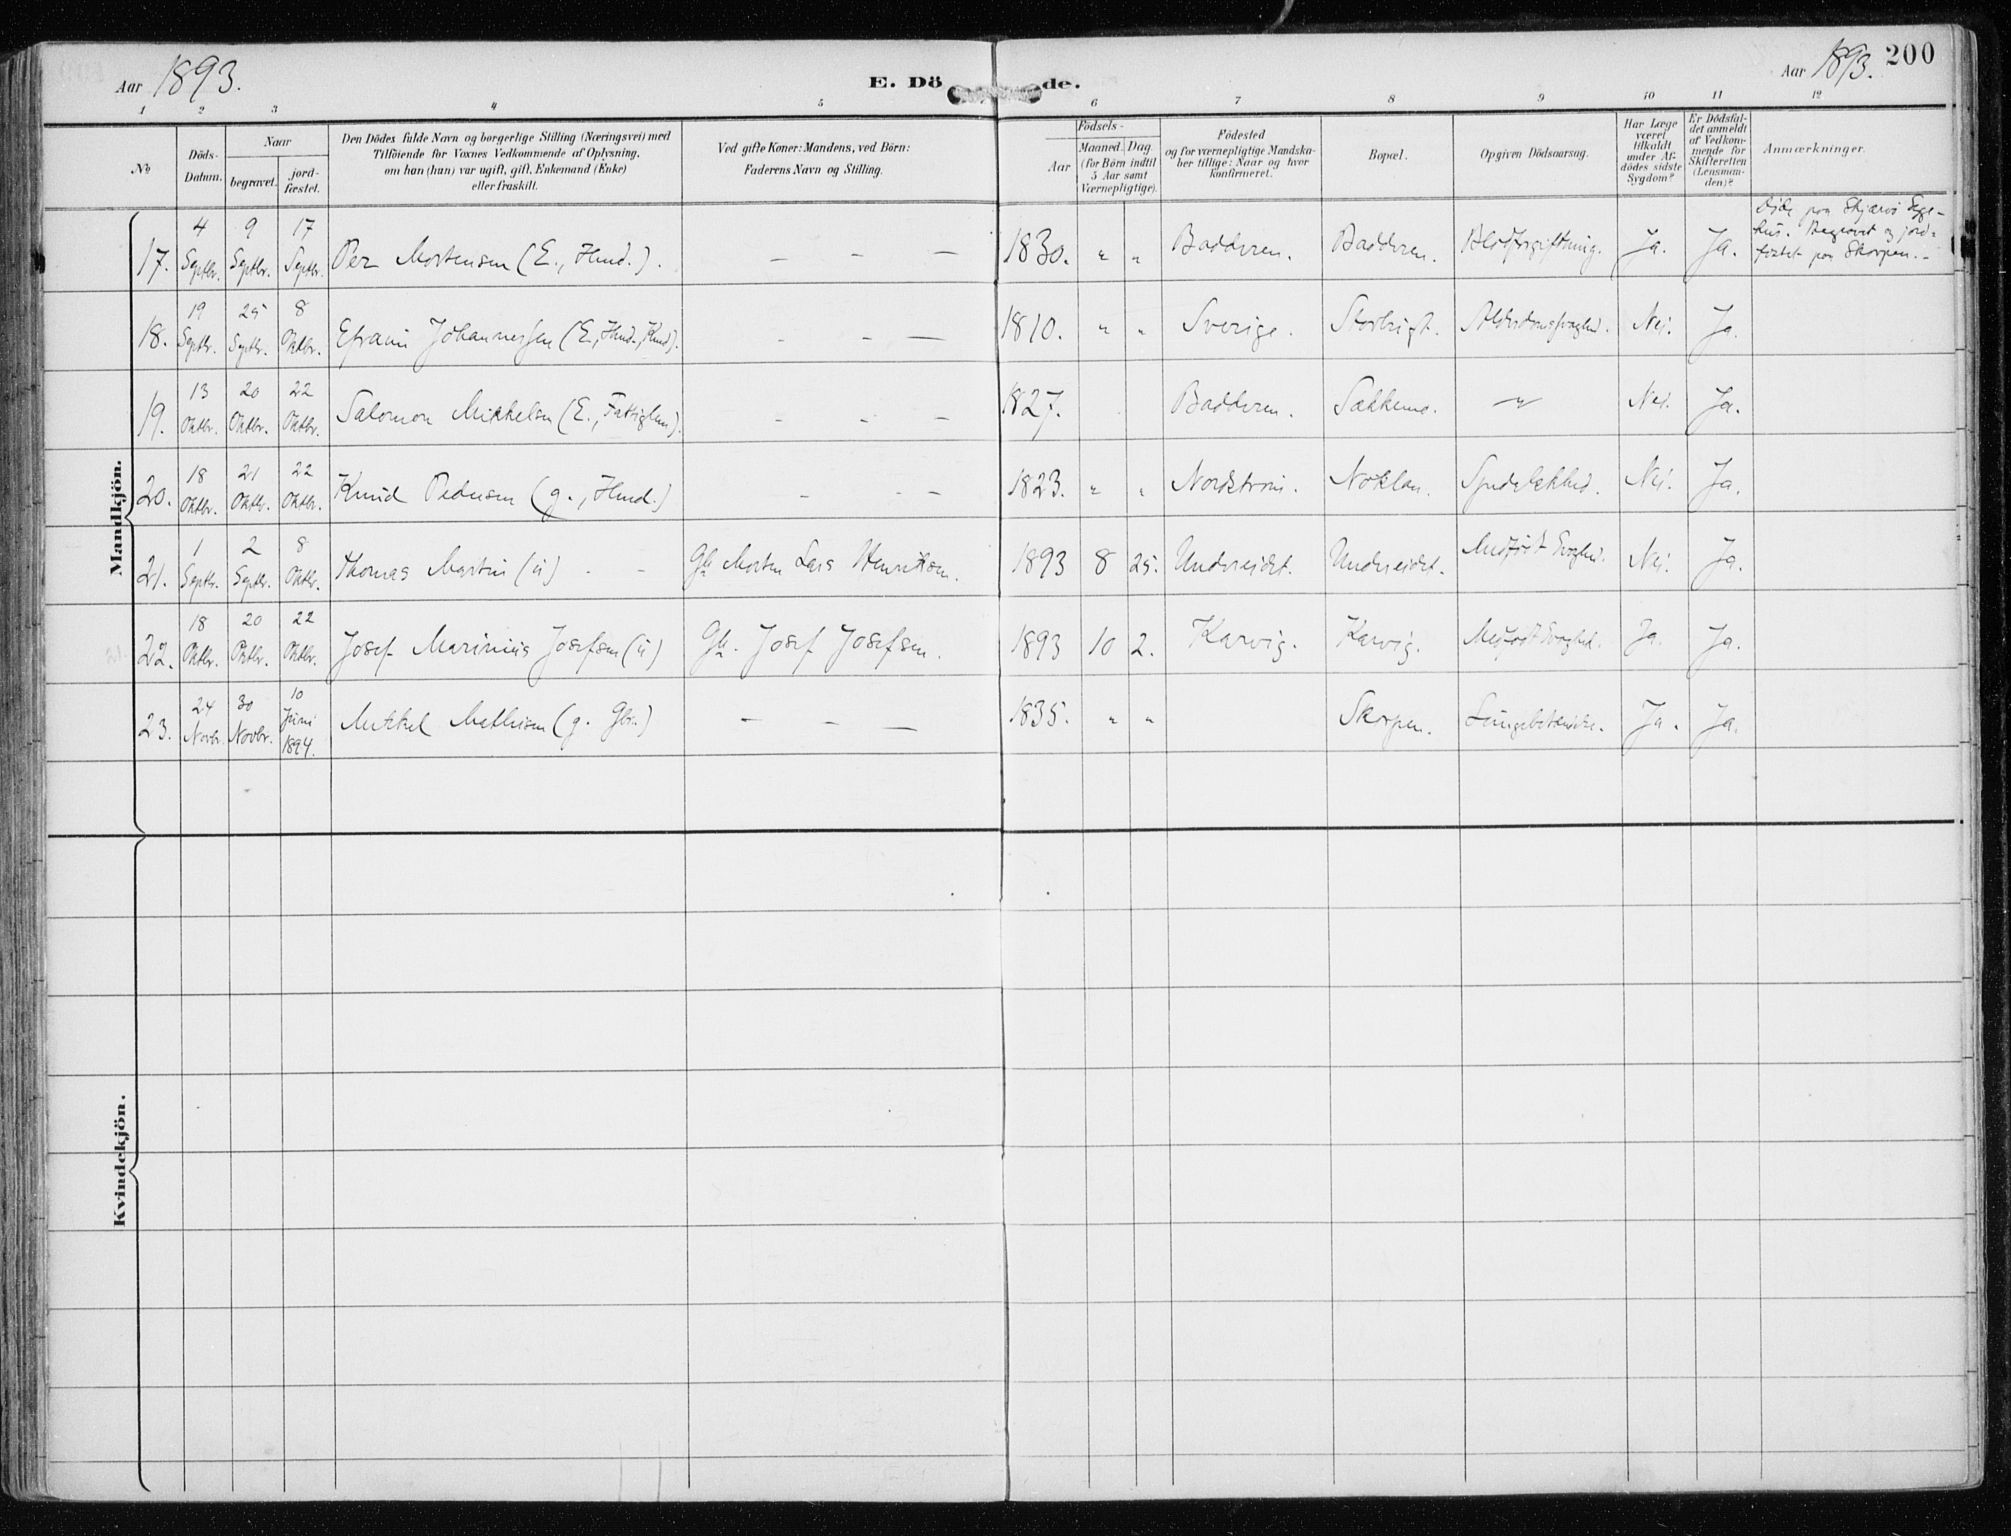 Aar 1893.
E. Dö
de.
Aar 1893.
200
1 2 3 4 5 6 7 8 9 10 11 12
No
Döds-
Datum.
Naar
begravet.
jord-
fæstet.
Den Dödes fulde Navn og borgerlige Stilling (Næringsvei) med
Tilföiende for Voxnes Vedkommende af Oplysning,
om han (hun) var ugift, gift, Enkemand (Enke)
eller fraskilt.
Ved gifte Koner: Mandens, ved Börn:
Faderens Navn og Stilling.
Födsels-
Aar
Maaned.
Dag.
(for Börn indtil
5 Aar samt
Værnepligtige).
Födested
og for værnepligtige Mandska-
ber tillige: Naar og hvor
konfirmeret.
Bopæl.
Opgiven Dödsaarsag.
Har Læge
været
tilkaldt
under Af-
dödes sidste
Sygdom?
Er Dödsfal-
det anmeldt
af Vedkom-
mende for
Skifteretten
(Lensman-
den)?
Anmærkninger.
Mandkjön.
17. 4 Septbr. 9 Septbr. 17 Septbr. Per Mortensen (E., Hmd.). — — — 1830. " " Badderen. Badderen. Blodforgiftning. Ja. Ja. Døde paa Skjærvø Syge-
hus. Begravet og jord-
fæstet paa Skorpen.-
18. 19 Septbr. 25 Septbr. 8 Oktbr. Efraim Johannessen (E., Hmd., Kmd). - - — 1810. " " Sverige. Storbugt. Alderdomssvaghed. Nei. Ja.
19. 13 Oktbr. 20 Oktbr. 22 Oktbr. Salomon Mikkelsen (E., Fattiglem). - - — 1827. Badderen. Sækkemo. —"— Nei. Ja.
20. 18 Oktbr. 21 Oktbr. 22 Oktbr. Knud Pedersen (g., Hmd.) - - — 1823. " " Nordstrøm. Nøklan. Spedalskhed. Nei. Ja.
21. 1 Septbr. 2 Septbr. 8 Oktbr. Thomas Martin (u) - - Gbr. Morten Lars Henriksen. 1893 8 25. Undereidet. Undereidet. Medfødt Svaghed. Nei. Ja.
22. 18 Oktbr. 20 Oktbr. 22 Oktbr. Josef Marinius Josefsen (u) Gbr. Josef Josefsen. 1893 10 2. Karvig. Karvig. Medfødt Svaghed. Ja. Ja.
23. 24 Novbr. 30 Novbr. 10 Juni 1894. Mikkel Mathisen (g. Gbr.) — — — 1835. " " Skorpen. Lungebetændelse. Ja. Ja.
Kvindekjön.